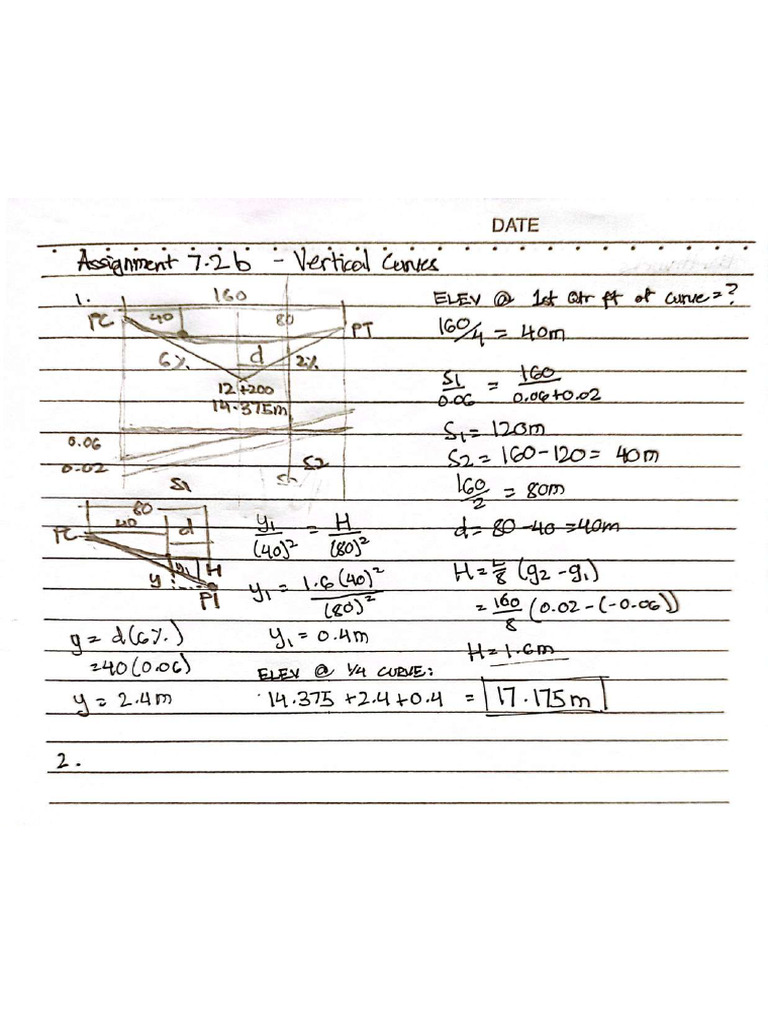 DATE
Assignment 7.2b - Vertical Curves
1.
160
PC
40
80
PT
6%
d
2%
12+200
14.375m
0.06
0.02
S1
S2
ELEV @ 1st Qtr pt of curve = ?
160/4 = 40m
S1/0.06 = 160/0.06+0.02
S1 = 120m
S2 = 160-120 = 40m
160/2 = 80m
d = 80-40 = 40m
H = L/8 (g2 - g1)
= 160/8 (0.02 - (-0.06))
H = 1.6m
80
40
d
PC
y
y1
H
PI
y1/(40)² = H/(80)²
y1 = 1.6(40)²/(80)²
y1 = 0.4m
y = d(6%)
= 40(0.06)
y = 2.4m
ELEV @ 1/4 CURVE:
14.375 + 2.4 + 0.4 = 17.175m
2.